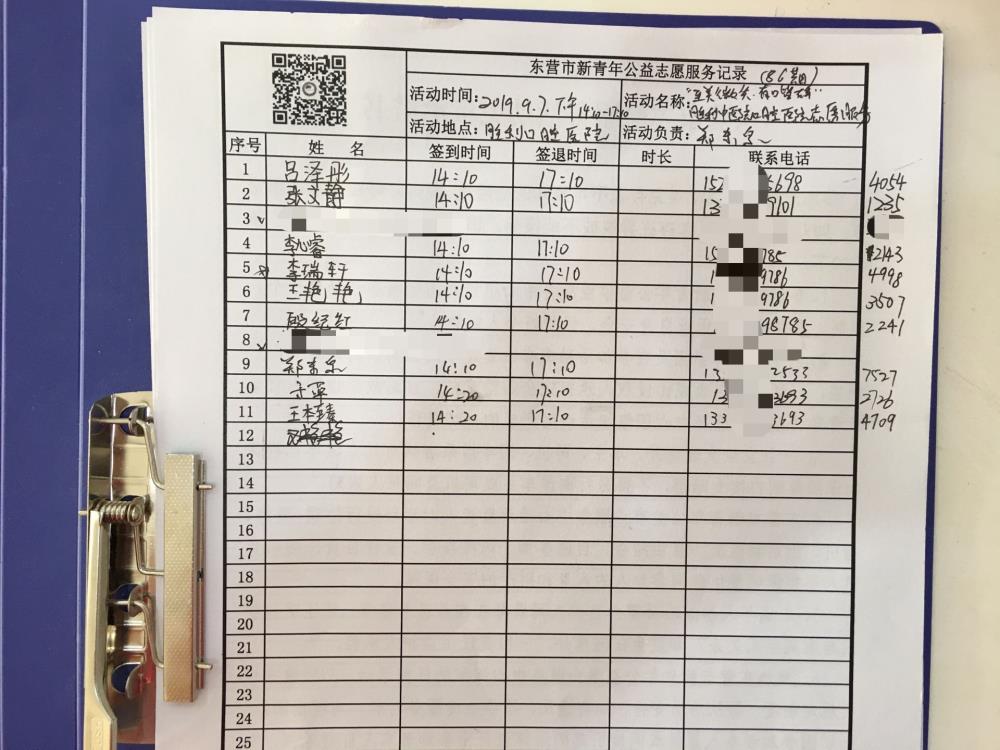 东营市新青年公益志愿服务记录 (86期)
活动时间: 2019.9.7.下午14:10-17:10 活动名称:
活动地点: 胜利口腔医院 活动负责:
序号 姓 名 签到时间 签退时间 时长 联系电话
1 吕泽彤 14:10 17:10 152 3698 4054
2 张文静 14:10 17:10 13 9101 1235
3
4 李心睿 14:10 17:10 15 785 2143
5 李瑞轩 14:10 17:10 1 9786 4998
6 王艳艳 14:10 17:10 1 9786 3507
7 14:10 17:10 98785 2241
8
9 郑 14:10 17:10 13 2533 7527
10 14:20 17:10 13 3693 2726
11 14:20 17:10 133 3693 4709
12
13
14
15
16
17
18
19
20
21
22
23
24
25